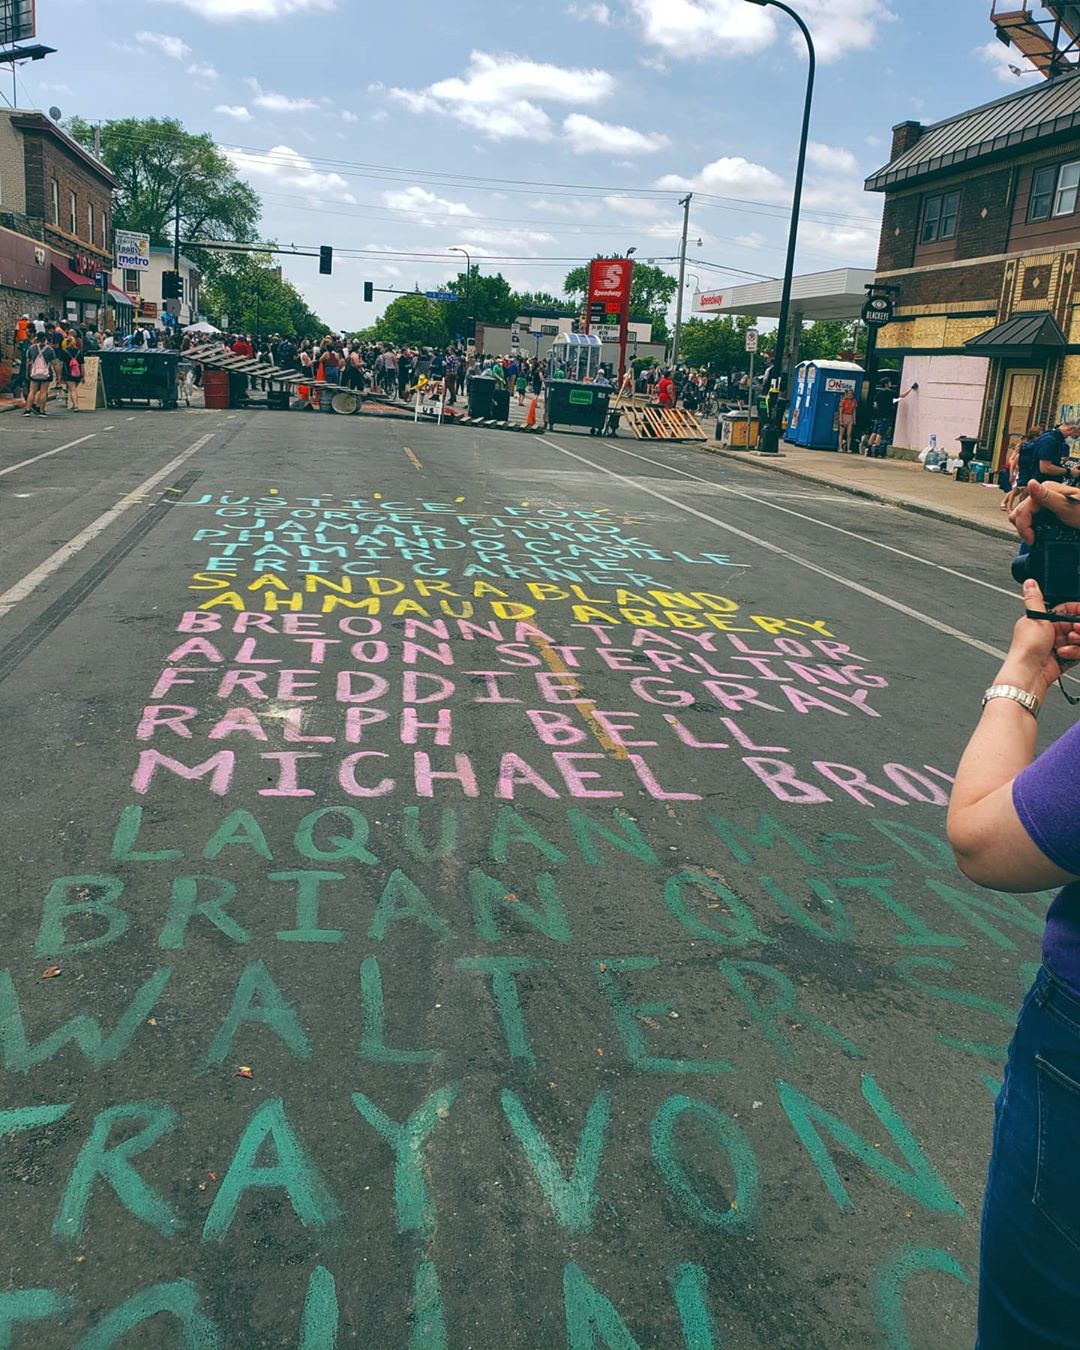 metro
S
Speedway
Speedway
BLACKEYE
ON Site
JUSTICE FOR
GEORGE FLOYD
JAMAR CLARK
PHILANDO CASTILE
TAMIR RICE
ERIC GARNER
SANDRA BLAND
AHMAUD ARBERY
BREONNA TAYLOR
ALTON STERLING
FREDDIE GRAY
RALPH BELL
MICHAEL BROW
LAQUAN McD
BRIAN QUIN
WALTER S
TRAYVON